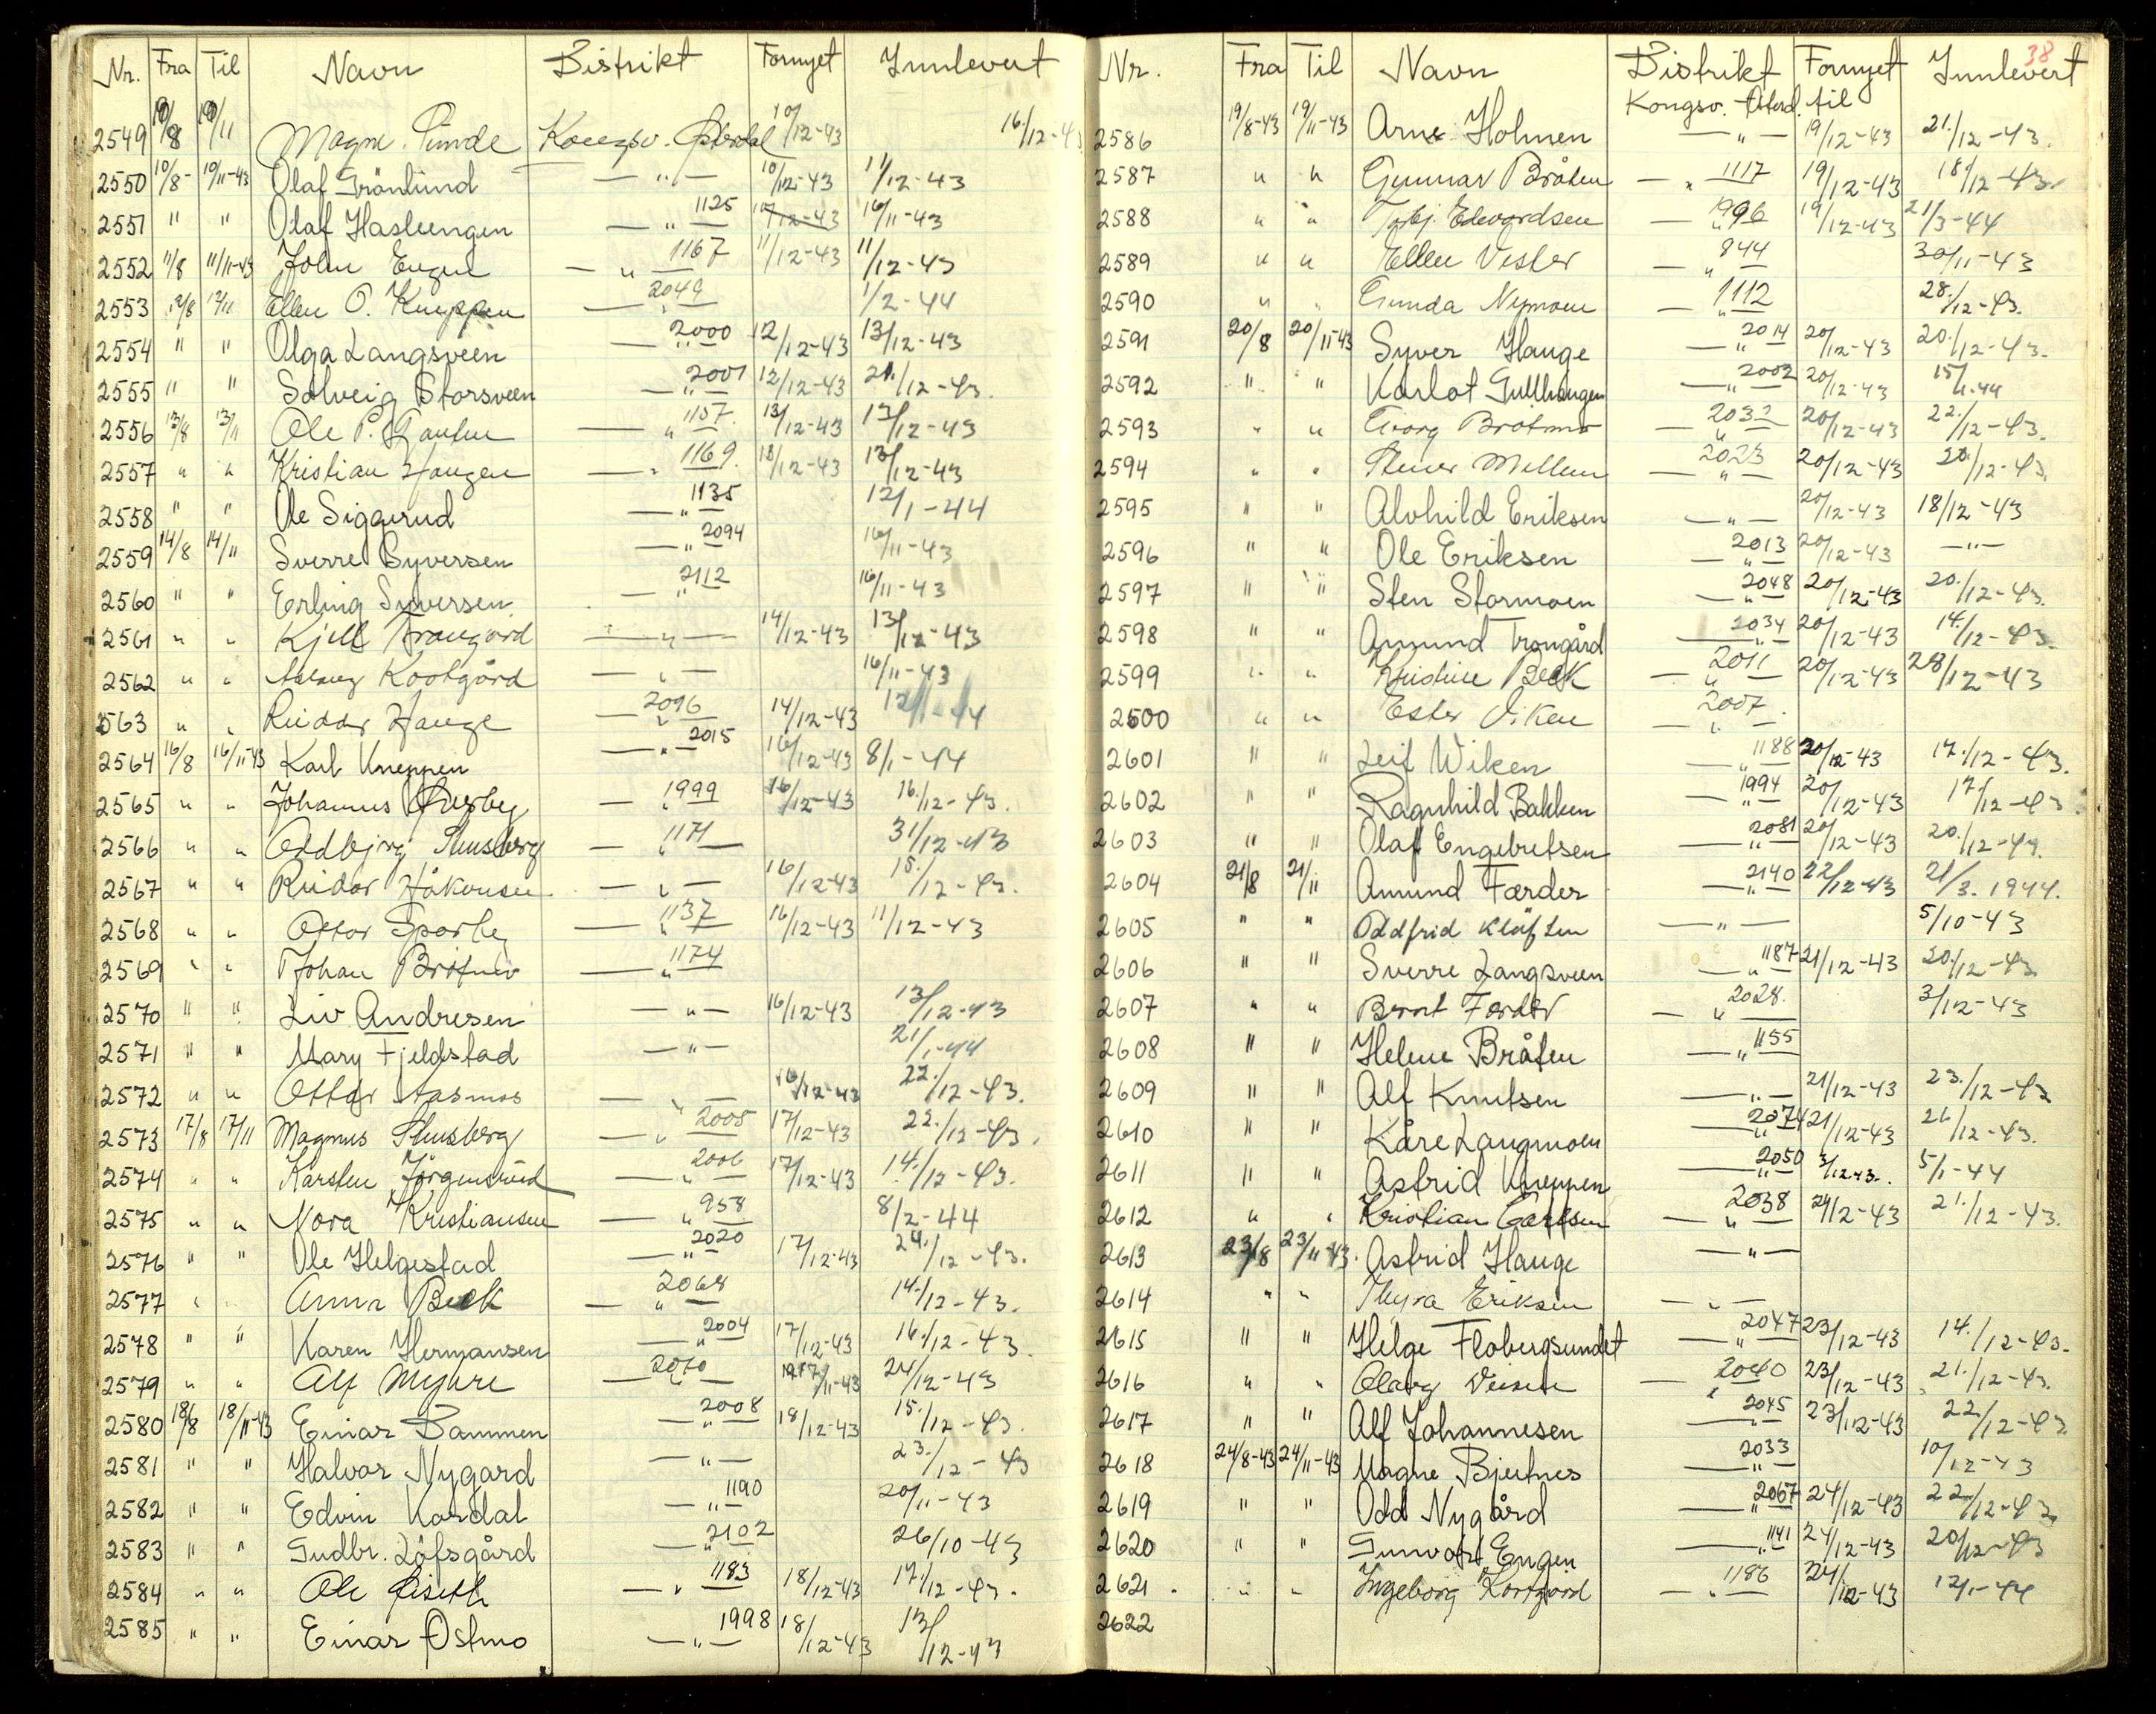 Nr. Fra Til Navn Distrikt Fornyet Innlevert
2549 10/8 10/11 Magne Kongsv. Østerdal 10/12-43 16./12-43
2550 10/8- 10/11-43 Olaf Grönlund — " — 10/12-43 11/12-43
2551 " " Olaf Hasleengen — " — 1125 16/11-43
2552 11/8 11/11-43 John Engen — " — 1167 11/12-43 11/12-43
2553 12/8 12/11 Ellen O. Kneppen — " — 2049 1/2-44
2554 " " Olga Langsveen — " — 2000 12/12-43 13/12-43
2555 " " Solveig Storsveen — " — 2001 12/12-43 21./12-43.
2556 13/8 13/11 Ole P. — " — 1157. 13/12-43 13/12-43
2557 " " Kristian Haugen — " — 1169. 13/12-43 13/12-43
2558 " " Ole Siggerud — " — 1135 12/1-44
2559 14/8 14/11 Sverre Syversen — " — 2094 16/11-43
2560 " " Erling Syversen — " — 2112 16/11-43
2561 " " Kjell Trangård — " — 14/12-43 13/12-43
2562 " " Aslaug — " — 16/11-43
2563 " " Reidar Hauge — " — 2096 14/12-43 12/1-44
2564 16/8 16/11-43 Karl Kneppen — " — 2015 16/12-43 8/1-44
2565 " " Johannes — " — 1999 16/12-43 16./12-43.
2566 " " Oddbjörg Slusberg — " — 1171 31/12-43
2567 " " Reidar Håkonsen — " — 16/12-43 15./12-43.
2568 " " Ottar Sparby — " — 1137 16/12-43 11/12-43
2569 " " Johan Bråtmo — " — 1174
2570 " " Liv Andresen — " — 16/12-43 13/12-43
2571 " " Mary Fjeldstad — " — 21/1-44
2572 " " Ottar Aasmos — " — 16/12-43 22./12-43.
2573 17/8 17/11 Magnus Slusberg — " — 2005 17/12-43 22./12-43.
2574 " " Karsten Jörgensrud — " — 2006 17/12-43 14./12-43.
2575 " " Nora Kristiansen — " — 958 8/2-44
2576 " " Ole Helgestad — " — 2020 17/12-43 24./12-43.
2577 " " Anna Beck — " — 2068 14./12-43.
2578 " " Karen Hermansen — " — 2004 17/12-43 16./12-43.
2579 " " Alf Myhre — " — 2010 17/11-43 24/12-43
2580 18/8 18/11-43 Einar Bammen — " — 2008 18/12-43 15./12-43.
2581 " " Halvor Nygard — " — 23./12-43
2582 " " Edvin Kordal — " — 1190 20/11-43
2583 " " Gudbr. Löfsgård — " — 2102 26/10-43
2584 " " Ole — " — 1183 18/12-43 17./12-43.
2585 " " Einar Östmo — " — 1998 18/12-43 13/12-43
38
Nr. Fra Til Navn Distrikt Fornyet Innlevert
Kongsv. Østerd. til
2586 19/8-43 19/11-43 Arne Holmen — " — 19/12-43 21./12-43.
2587 " " Gunnar Bråten — " — 1117 19/12-43 18/12-43.
2588 " " Torbj. Edvardsen — " — 1996 19/12-43 21/3-44
2589 " " Ellen Vester — " — 844 30/11-43
2590 " " Gunda Nymoen — " — 1112 28./12-43.
2591 20/8 20/11-43 Syver Hauge — " — 2014 20/12-43 20./12-43.
2592 " " Karlot Gullhaugen — " — 2002 20/12-43 15/1.44
2593 " " Georg Bråtmo — " — 2032 20/12-43 22./12-43.
2594 " " — " — 2023 20/12-43 20./12-43.
2595 " " Alvhild Eriksen — " — 20/12-43 18/12-43
2596 " " Ole Eriksen — " — 2013 20/12-43 — " —
2597 " " Sten Stormoen — " — 2048 20/12-43 20./12-43.
2598 " " Amund Trongård — " — 2034 20/12-43 14./12-43.
2599 " " Kristine Beck — " — 2011 20/12-43 28/12-43
2600 " " Ester Viken — " — 2007.
2601 " " Leif Wiken — " — 1188 20/12-43 17./12-43.
2602 " " Ragnhild Bakken — " — 1994 20/12-43 17./12-43.
2603 " " Olaf Engebretsen — " — 2081 20/12-43 20./12-43.
2604 21/8 21/11 Amund Færder — " — 2140 22/12-43 21/3. 1944.
2605 " " Oddfrid Kläften — " — 5/10-43
2606 " " Sverre Langsveen — " — 1187 21/12-43 20./12-43
2607 " " Bernt Færder — " — 2028. 3/12-43
2608 " " Helene Bråten — " — 1155
2609 " " Alf Knutsen — " — 21/12-43 23./12-43
2610 " " Kåre Langmoen — " — 2074 21/12-43 21./12-43.
2611 " " Astrid Kneppen — " — 2050 3/12 43. 5/1-44
2612 " " Kristian Carlsen — " — 2038 21/12-43 21./12-43.
2613 23/8 23/11-43. Astrid Hauge — " —
2614 " " Thyra Eriksen — " —
2615 " " Helge Flobergsundet — " — 2047 23/12-43 14./12-43.
2616 " " Olaug — " — 2040 23/12-43 21./12-43.
2617 " " Alf Johannesen — " — 2045 23/12-43 22/12-43
2618 24/8-43 24/11-43 Magne Bjertnes — " — 2033 10/12-43
2619 " " Odd Nygård — " — 2067 24/12-43 22/12-43
2620 " " Gunvor Engen — " — 1141 24/12-43 20/12-43
2621. " " Ingeborg — " — 1186 24/12-43 12/1-44
2622